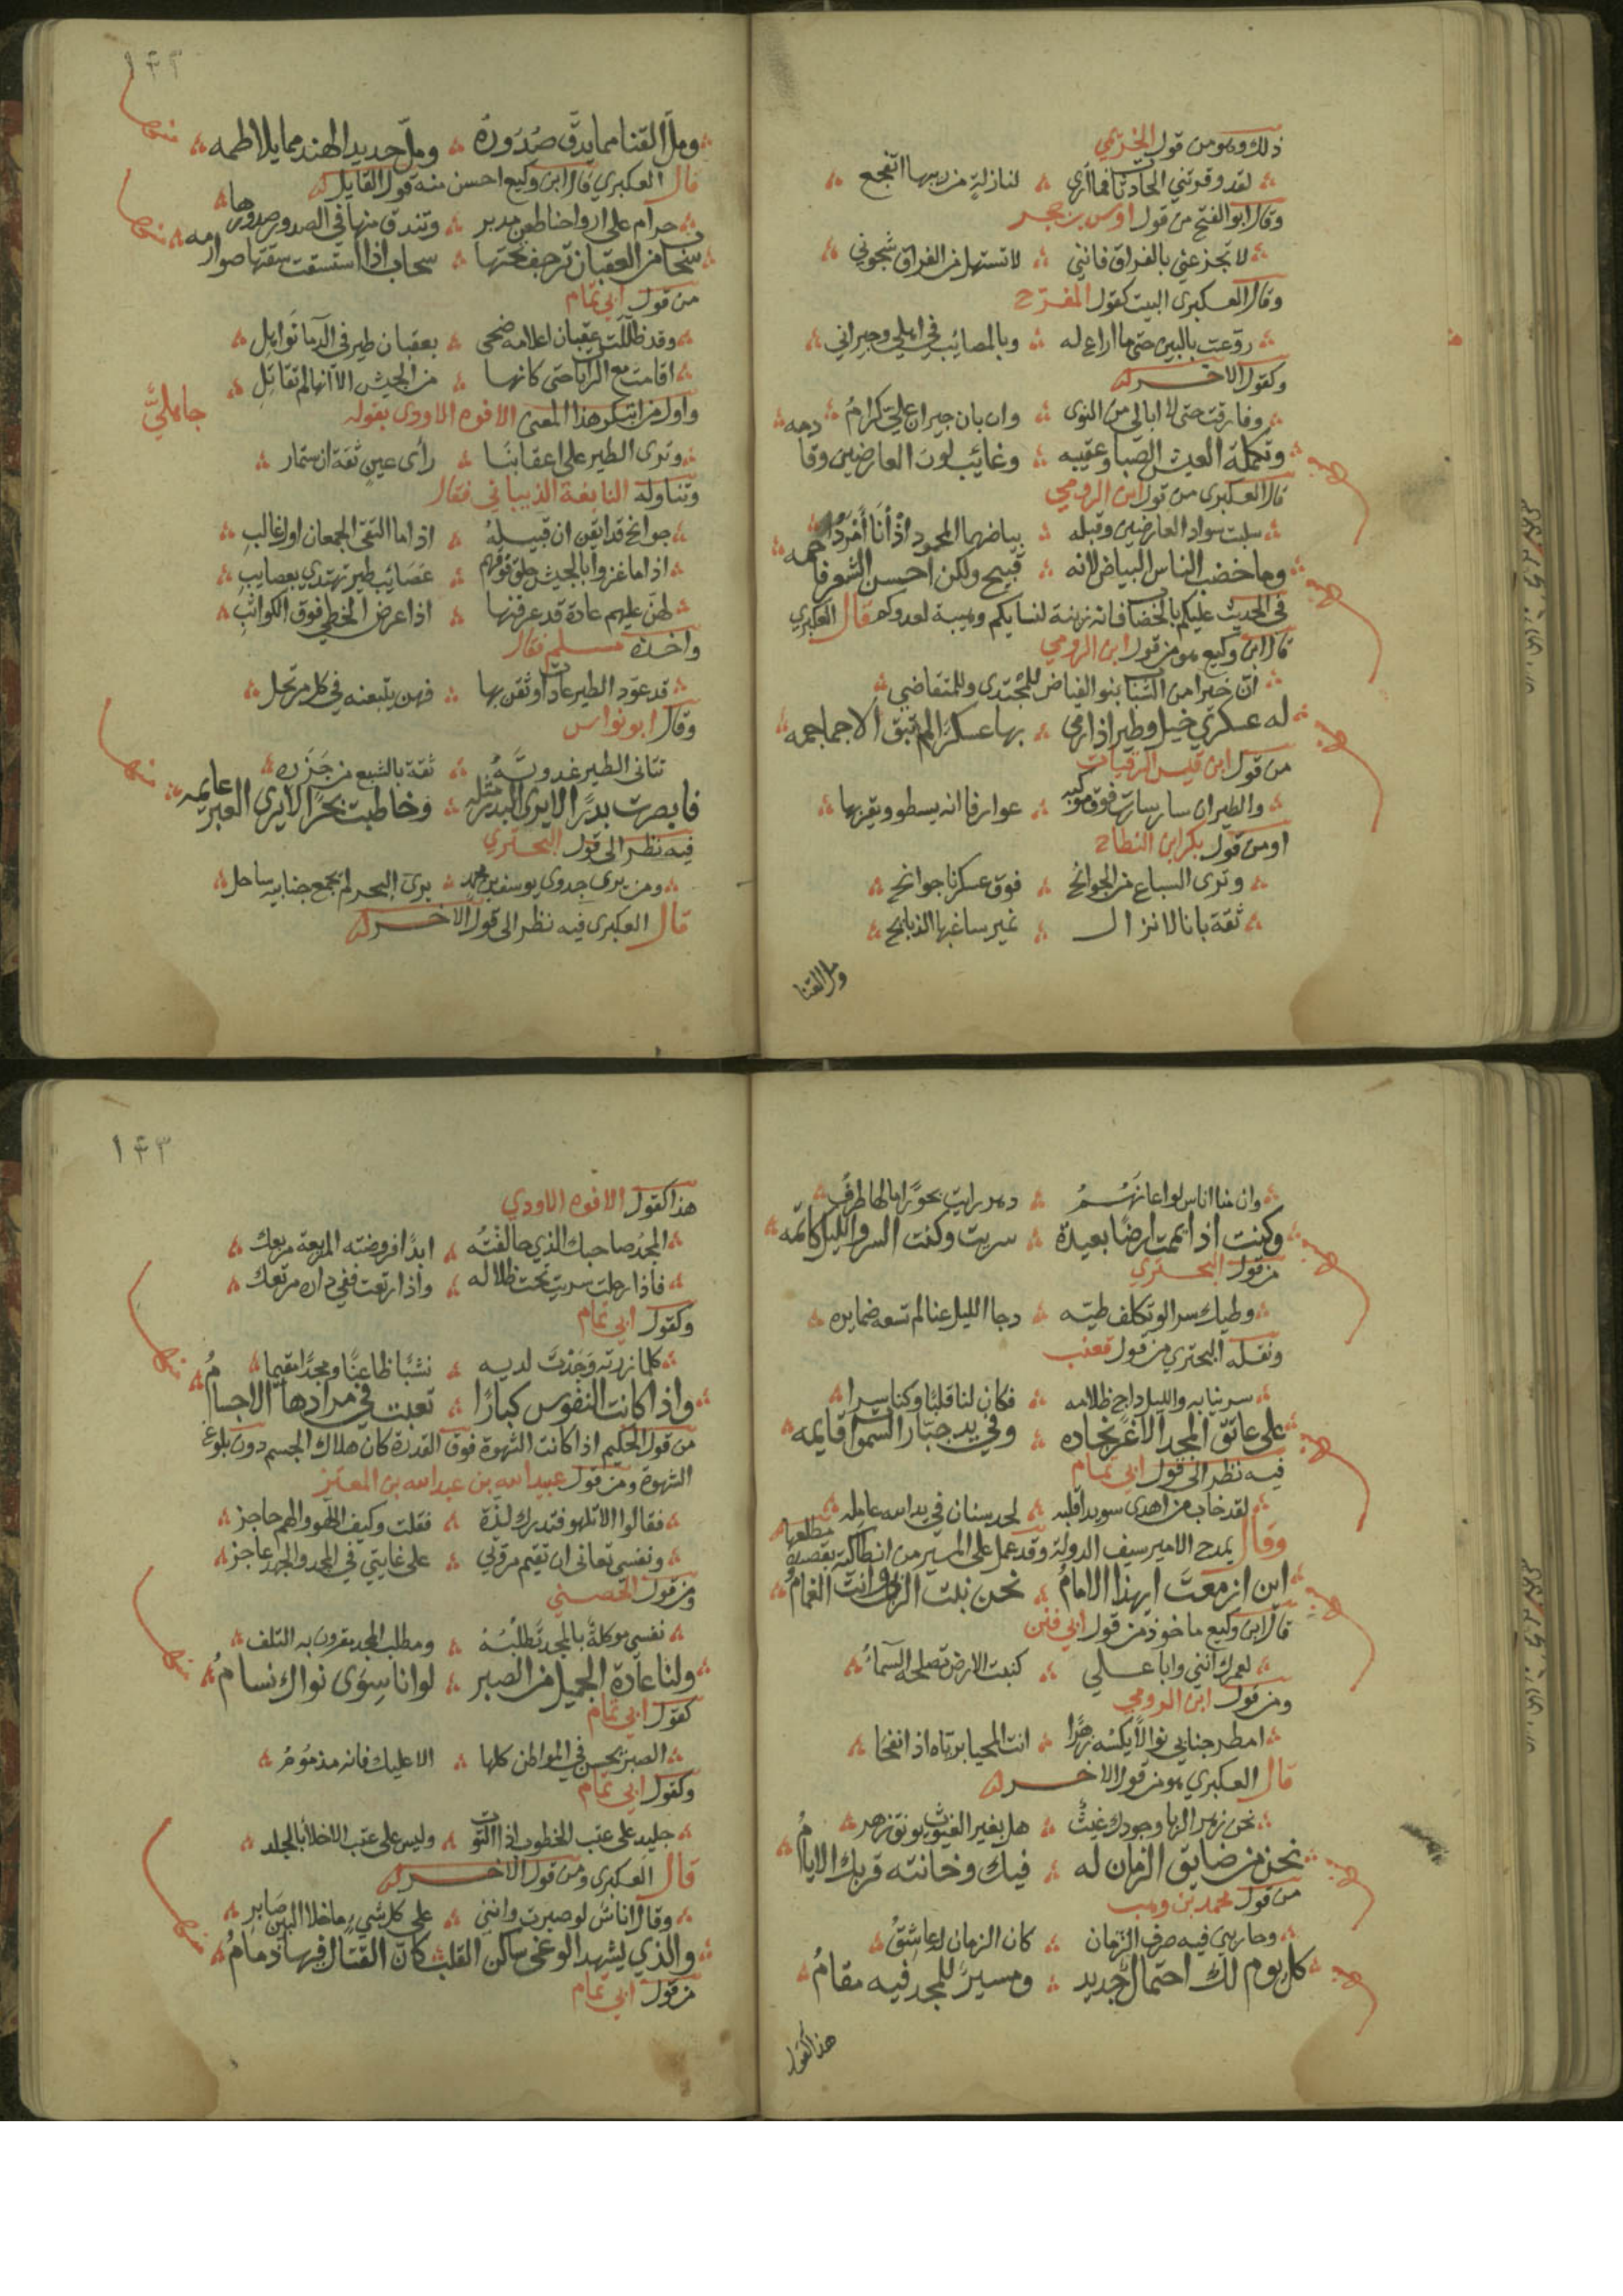 ذلك وهو من قول الخزيمي
لقد وقرتني الحادثات فما أرى ∴ لنازلة من ريبها اتفجع
وقال ابو الفتح من قول اوس بن حجر
لا تجزعني بالفراق فانني ∴ لا تستهل من الفراق شجوني
وقال العكبري البيت كقول المفرج
روعت بالبين حتى ما اراع له ∴ وبالمصائب في اهلي وجيراني
وكقول الاخر
وفارقت حتى لا ابالي من النوى ∴ وان بان جيران علي كرام
وتكملة العيش الصبا وعقيبه ∴ وغائب لون العارضين وقادمه
قال العكبري من قول ابن الرومي
سلبت سواد العارضين وقبله ∴ بياضهما المحمود اذ أنا أمرد
وما خضب الناس البياض لانه ∴ قبيح ولكن احسن الشعر فاحمه
في الحديث عليكم بالخضاب فانه زينة لنسايكم وهيبة لعدوكم قال العكبري
قال ابن وكيع هو من قول ابن الرومي
له عسكري خيل وطير اذا رمى ∴ بها عسكرا لم تبق الا جماجمه
من قول ابن قيس الرقيات
والطير ان سار سارت فوق موكبه ∴ عوارفا انه يسطو ويقريها
او من قول بكر ابن النطاح
وترى السباع من الجوانح ∴ فوق عسكرنا جوانح
ثقة بانا لا نزال ∴ نمير ساغبها الذبايح
ومل القنا
١٤٢
ومل القنا مما يدق صدوره ∴ ومل حديد الهند مما يلاطمه
قال العكبري قال ابن وكيع احسن منه قول القايل
حرام على ارواحنا طعن مدبر ∴ وتندق منها في الصدور صدورها
سحاب من العقبان ترجف تحتها ∴ سحاب اذا استسقت سقتها صوارمه
من قول ابي تمام
وقد ظللت عقبان اعلامه ضحى ∴ بعقبان طير في الدما نواهل
اقامت مع الرايات حتى كانها ∴ من الجيش الا انها لم تقاتل
واول من ابتكر هذا المعنى الافوه الاودى بقوله
جاهلي
وترى الطير على اعقابنا ∴ رأى عين ثقة ان ستمار
وتناوله النابغة الذبياني فقال
جوانح قد ايقن ان قبيله ∴ اذا ما التقى الجمعان اول غالب
اذا ما غزوا بالجيش حلق فوقهم ∴ عصائب طير تهتدي بعصايب
لهن عليهم عادة قد عرفنها ∴ اذا عرض الخطي فوق الكواثب
واخذه مسلم فقال
قد عود الطير عادات وثقن بها ∴ فهن يتبعنه في كل مرتحل
وقال ابو نواس
تتانى الطير غدوته ∴ ثقة بالشبع من جزره
فابصرت بدرا لا يرى البدر مثله ∴ وخاطبت بحرا لا يرى العبر عايمه
فيه نظر الى قول البحتري
ومن يرى جدوى يوسف بن محمد ∴ يرى البحر لم يجمع جنابيه ساحل
قال العكبري فيه نظر الى قول الاخر
وكنت اذا يممت ارضا بعيدة ∴ سريت وكنت السر والليل كاتمه
من قول البحتري
وطيك سرا لو تكلف طيه ∴ دجا الليل عنا لم تسعه ضمايره
ونقله البحتري من قول قعنب
سرينا به والليل داج ظلامه ∴ فكان لنا قلبا وكنا سرا
على عاتق المجد الاغر نجاده ∴ وفي يد جبار السموات قايمه
فيه نظر الى قول ابي تمام
لقد خاب من اهدى سويدا قلبه ∴ لحد سنان في يد الله عامله
وقال يمدح الامير سيف الدولة وقد عمل على المسير من انطاكية بقصيدة مطلعها
اين ازمعت ايهذا الامام ∴ نحن نبت الربا وانت الغمام
قال ابن وكيع ماخوذ من قول ابي فنن
لعمرك انني وابا علي ∴ كنبت الارض تصلحه السماء
ومن قول ابن الرومي
قال العكبري هو من قول الاخر
نحن زهر الربا وجودك غيث ∴ هل بغير الغيوث يونق زهر
نحن من ضايق الزمان له ∴ فيك وخانته قربك الايام
من قول محمد بن وهب
وحاربني فيه صرف الزمان ∴ كان الزمان له عاشق
كل يوم لك احتمال جديد ∴ ومسير للمجد فيه مقام
هذا كقول
١٤٣
هذا كقول الافوه الاودي
المجد صاحبك الذي حالفته ∴ ابدا فروضته المريعة مربعك
فاذا رحلت سريت تحت ظلاله ∴ واذا رتعت ففي داره مرتعك
وكقول ابي تمام
كلما زرته وجدت لديه ∴ نشبا ظاعنا ومجدا مقيما
واذا كانت النفوس كبارا ∴ تعبت في مرادها الاجسام
من قول الحكيم اذا كانت الشهوة فوق القدرة كان هلاك الجسم دون بلوغ
الشهوة ومن قول عبيد الله بن عبد الله بن المعتز
فقالوا الا تلهو فتدرك لذة ∴ فقلت وكيف اللهو والهم حاجز
ونفسي تعانى ان تقيم مروتي ∴ على غايتي في المجد والجهد عاجز
ومن قول الحصني
نفسي موكلة بالمجد تطلبه ∴ ومطلب المجد مقرون به التلف
ولنا عادة الجميل من الصبر ∴ لو انا سوى نواك نسام
كقول ابي تمام
الصبر يحسن في المواطن كلها ∴ الا عليك فانه مذموم
وكقول ابي تمام
جليد على عتب الخطوب اذا التوت ∴ وليس على عتب الاخلا بالجلد
قال العكبري ومن قول الاخر
وقال اناس لو صبرت وانني ∴ على كل شيء ما خلا البين صابر
والذي يشهد الوغى ساكن القلب كان القتال فيها ذمام
من قول ابي تمام